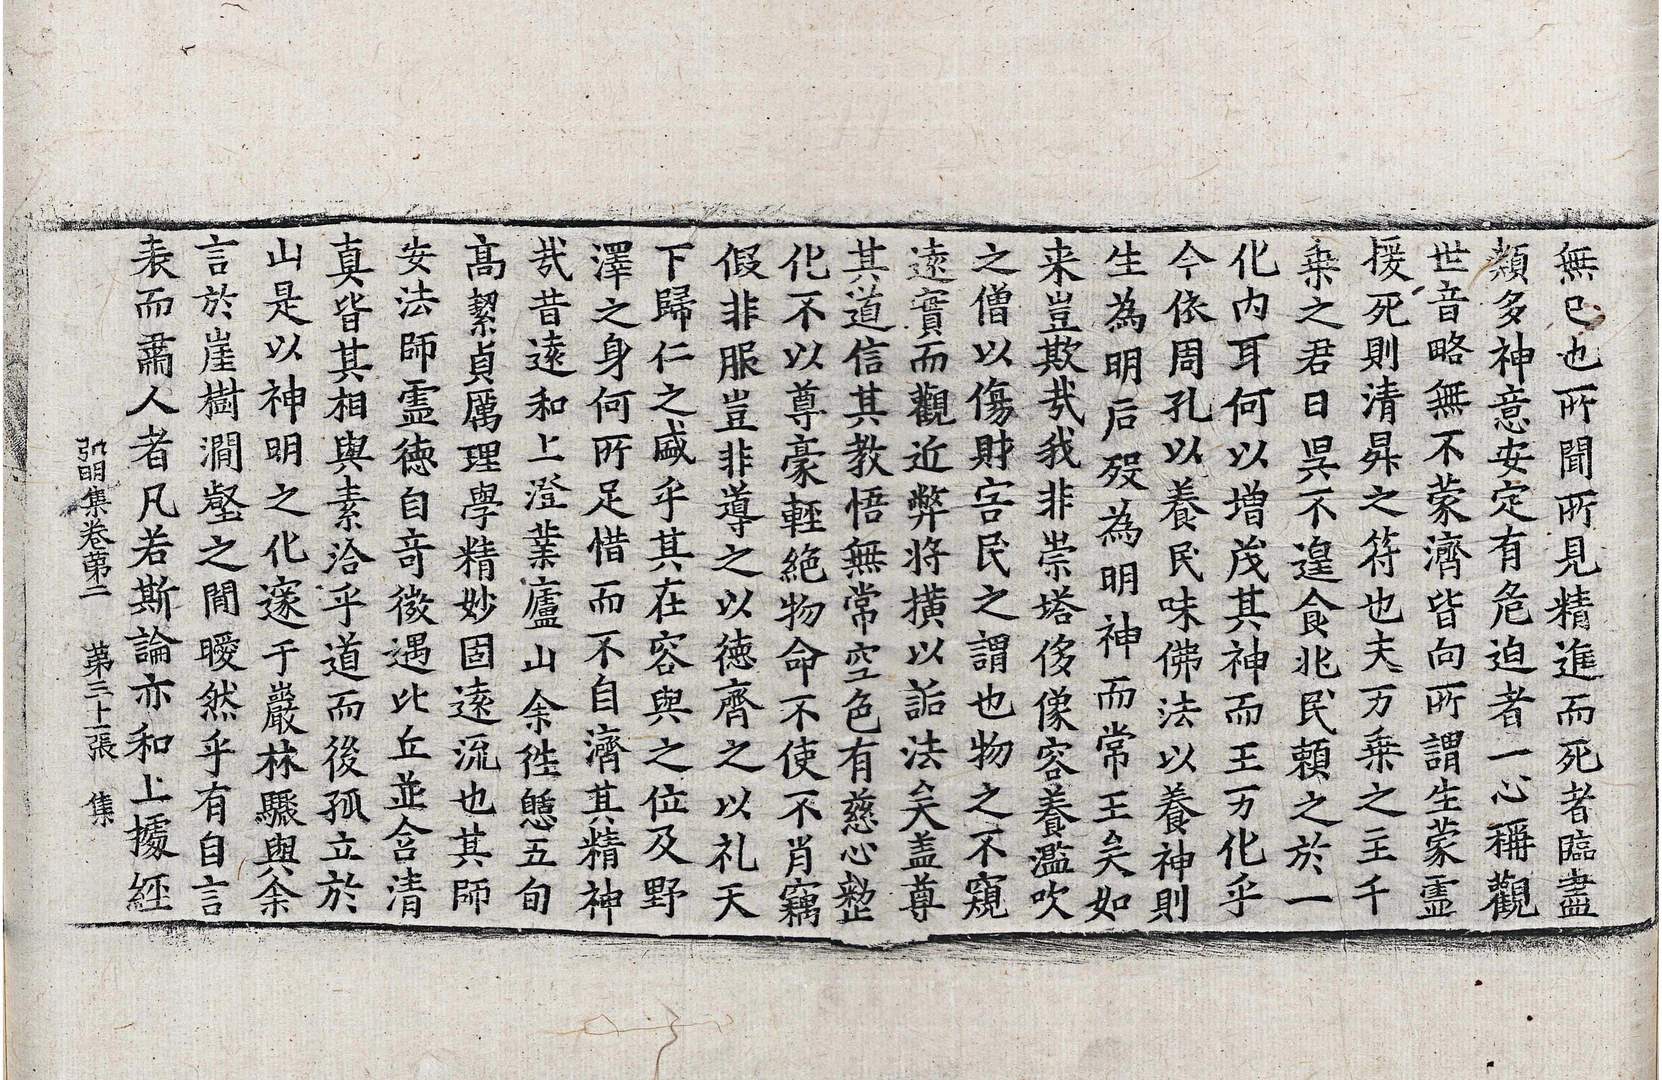 無已也所聞所見精進而死者臨盡
類多神意安定有危迫者一心稱觀
世音略無不蒙濟皆向所謂生蒙霊
援死則清昇之符也夫万乗之主千
乗之君日昃不遑食兆民頼之於一
化内耳何以增茂其神而王万化乎
今依周孔以養民味佛法以養神則
生為明后歿為明神而常王矣如
来豈欺㢤我非崇塔侈像容養濫吹
之僧以傷財害民之謂也物之不窺
遠實而觀近弊将横以詬法矣盖尊
其道信其教悟無常空色有慈心整
化不以尊豪輕絶物命不使不肖竊
假非服豈非導之以徳齊之以礼天
下歸仁之盛乎其在容與之位及野
澤之身何所足惜而不自濟其精神
㢤昔遠和上澄業廬山余徃憩五旬
高絜貞厲理學精妙固遠流也其師
安法師霊徳自竒微遇比丘並含清
真皆其相與素洽乎道而後孤立於
山是以神明之化邃于巖林驟與余
言於崖樹澗壑之間曖然乎有自言
表而肅人者凡若斯論亦和上據經
弘明集卷第二　第三十二張　集